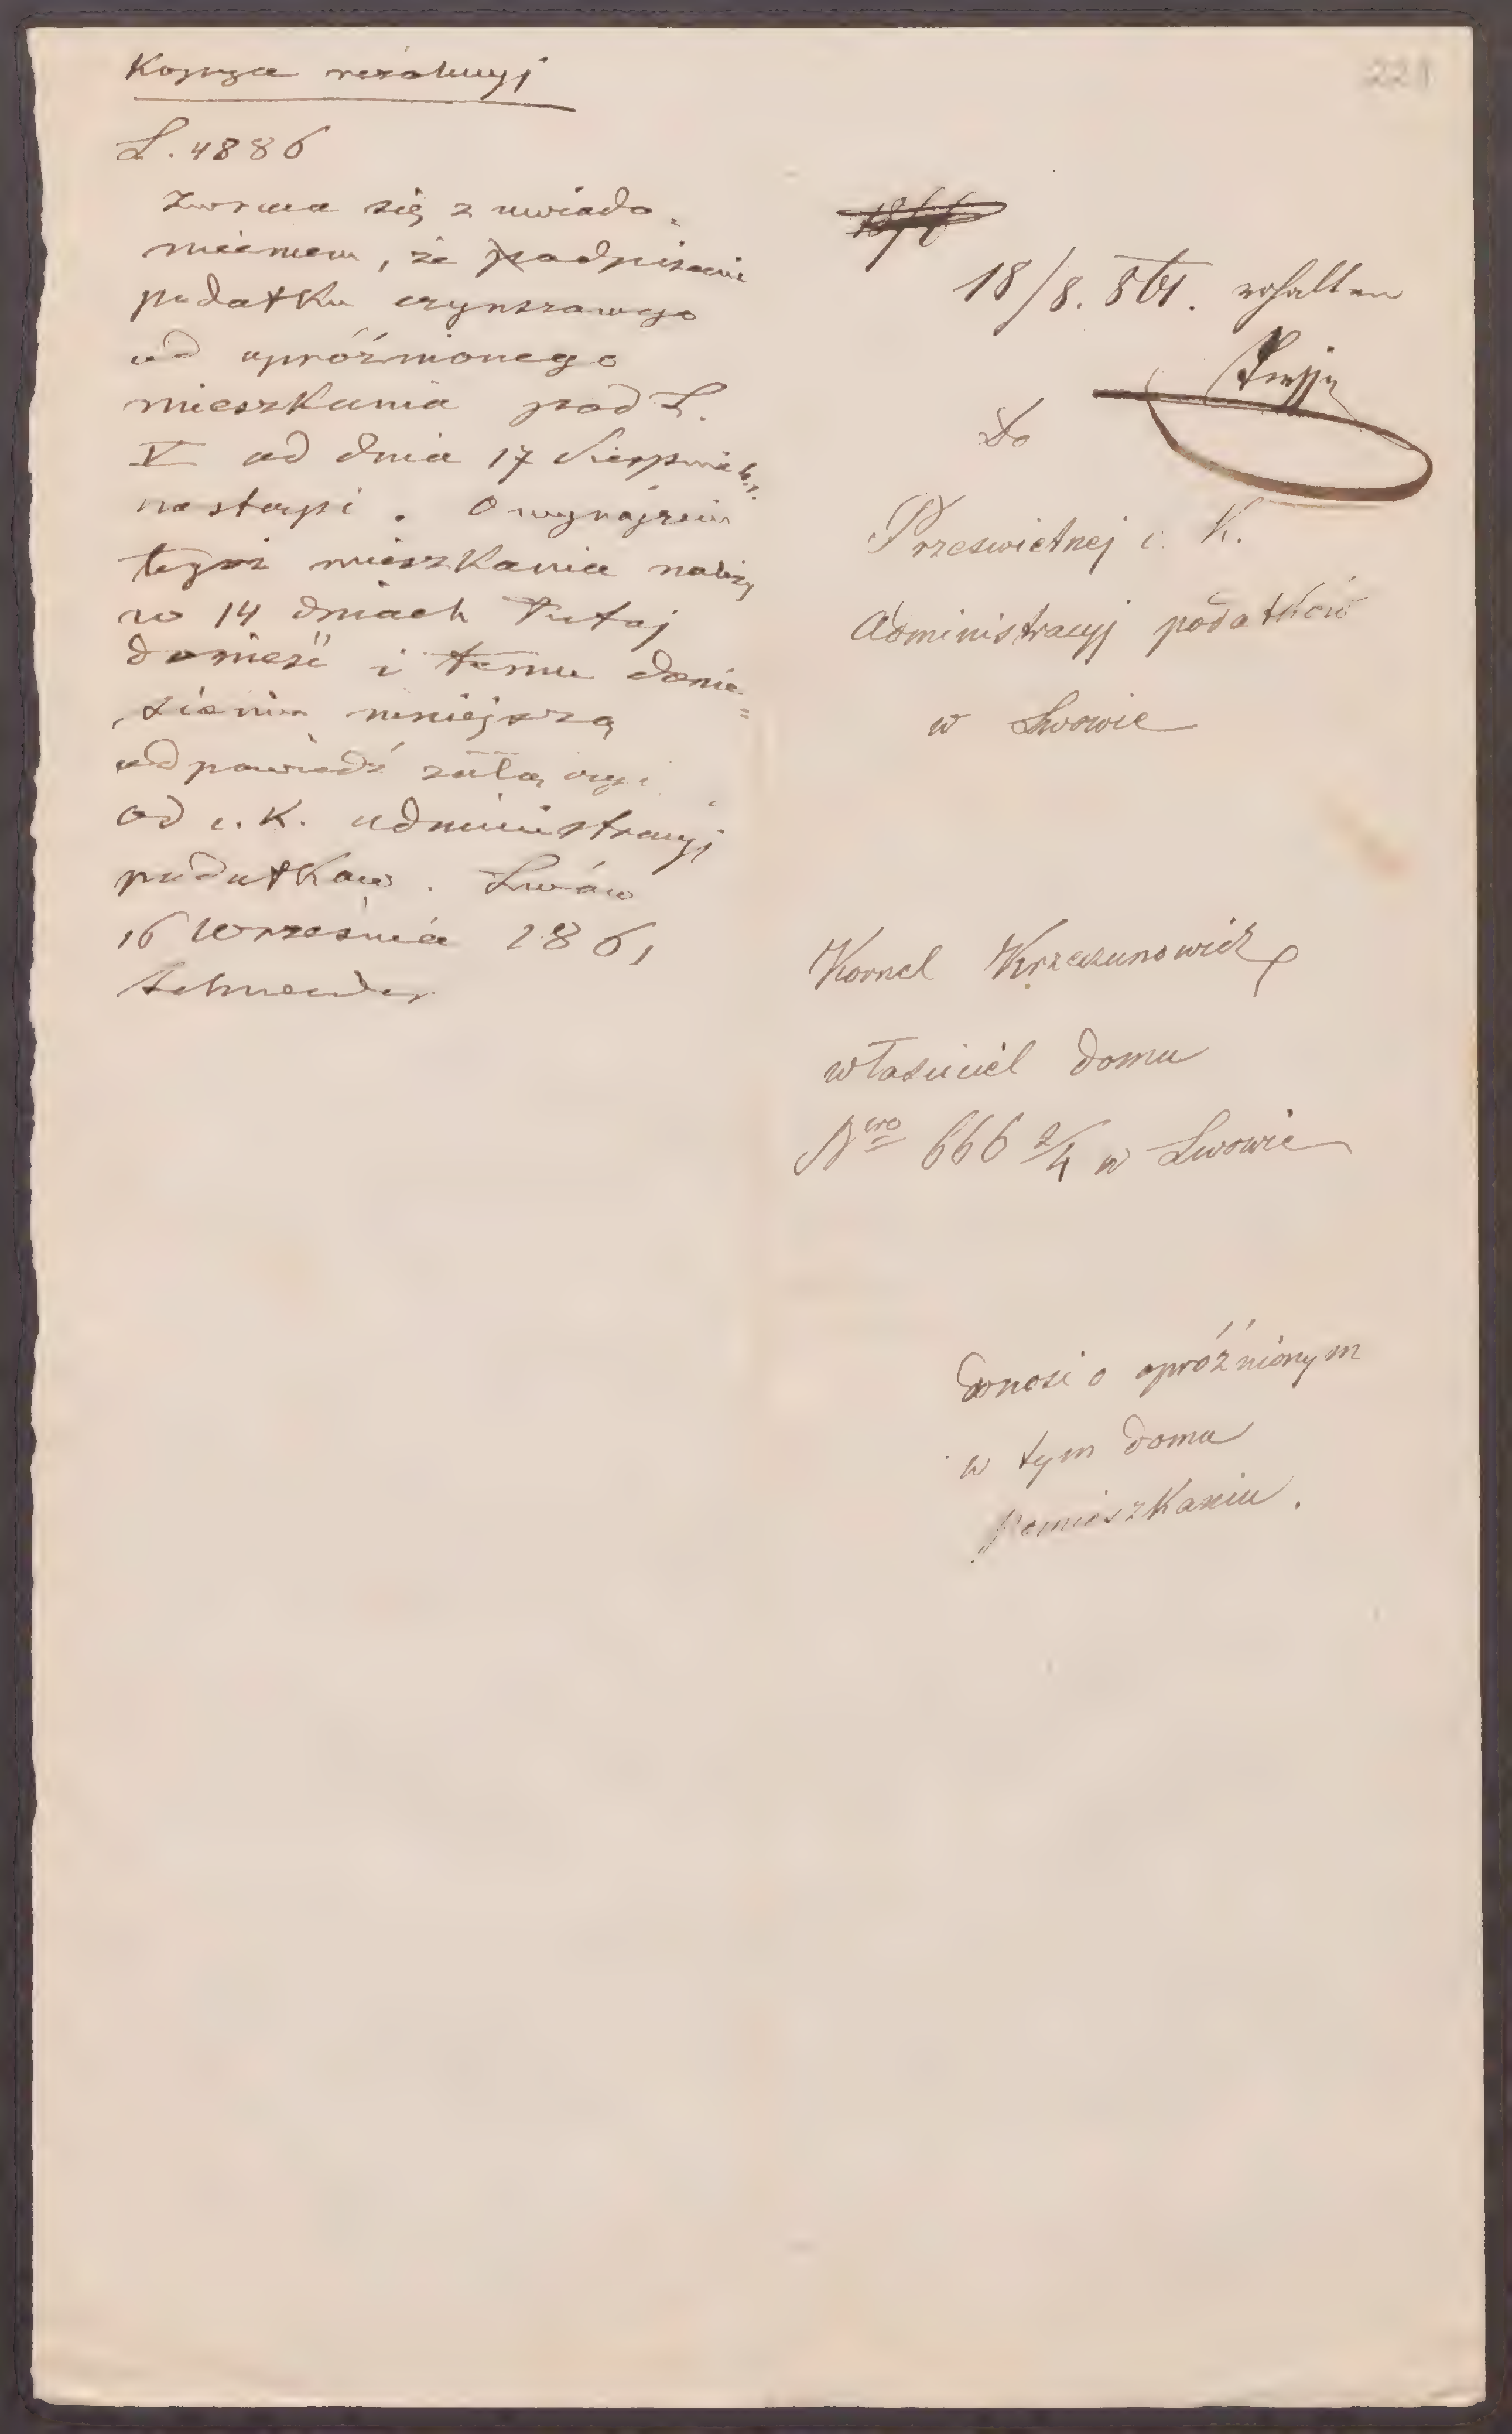 Kopyja rezolucyj
L. 4886
Zwraca się z uwiado-
mieniem, że odpisanie
podatku czynszowego
od opróżnionego
mieszkania pod L.
V od dnia 17 Sierpnia b.r.
nastąpi. O wynajęciu
tegoż mieszkania należy
w 14 dniach tutaj
donieść i temu donie-
sieniu niniejszą
odpowiedź załączyć.
Od c. K. administracyj
podatków. Lwów
16 Września 1861
Schneider
221
18/8. 861. erhalten
Do
Prześwietnej c. K.
Administracyj podatków
w Lwowie
Kornel Krzeczunowicz
właściciel domu
Nero 666 2/4 w Lwowie
donosi o opróżnionym
w tym domu
pomieszkaniu.